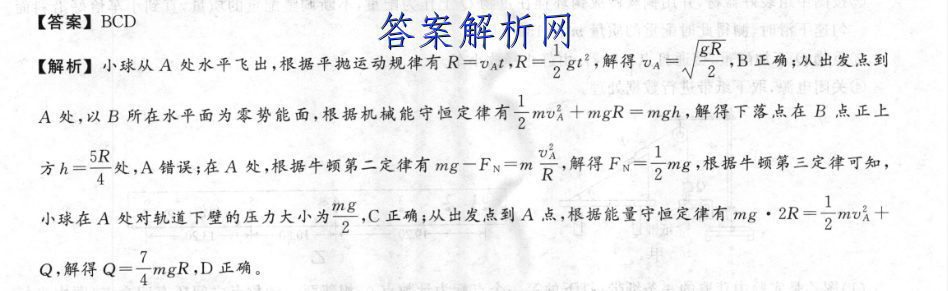 【答案】BCD
答案解析网
【解析】小球从 A 处水平飞出,根据平抛运动规律有 R=v_A t,R=\frac{1}{2}gt²,解得 v_A=\sqrt{\frac{gR}{2}},B 正确;从出发点到
A 处,以 B 所在水平面为零势能面,根据机械能守恒定律有\frac{1}{2}mv_A²+mgR=mgh,解得下落点在 B 点正上
方 h=\frac{5R}{4}处,A 错误;在 A 处,根据牛顿第二定律有 mg-F_N=m\frac{v_A²}{R},解得 F_N=\frac{1}{2}mg,根据牛顿第三定律可知,
小球在 A 处对轨道下壁的压力大小为\frac{mg}{2},C 正确;从出发点到 A 点,根据能量守恒定律有 mg·2R=\frac{1}{2}mv_A²+
Q,解得 Q=\frac{7}{4}mgR,D 正确。